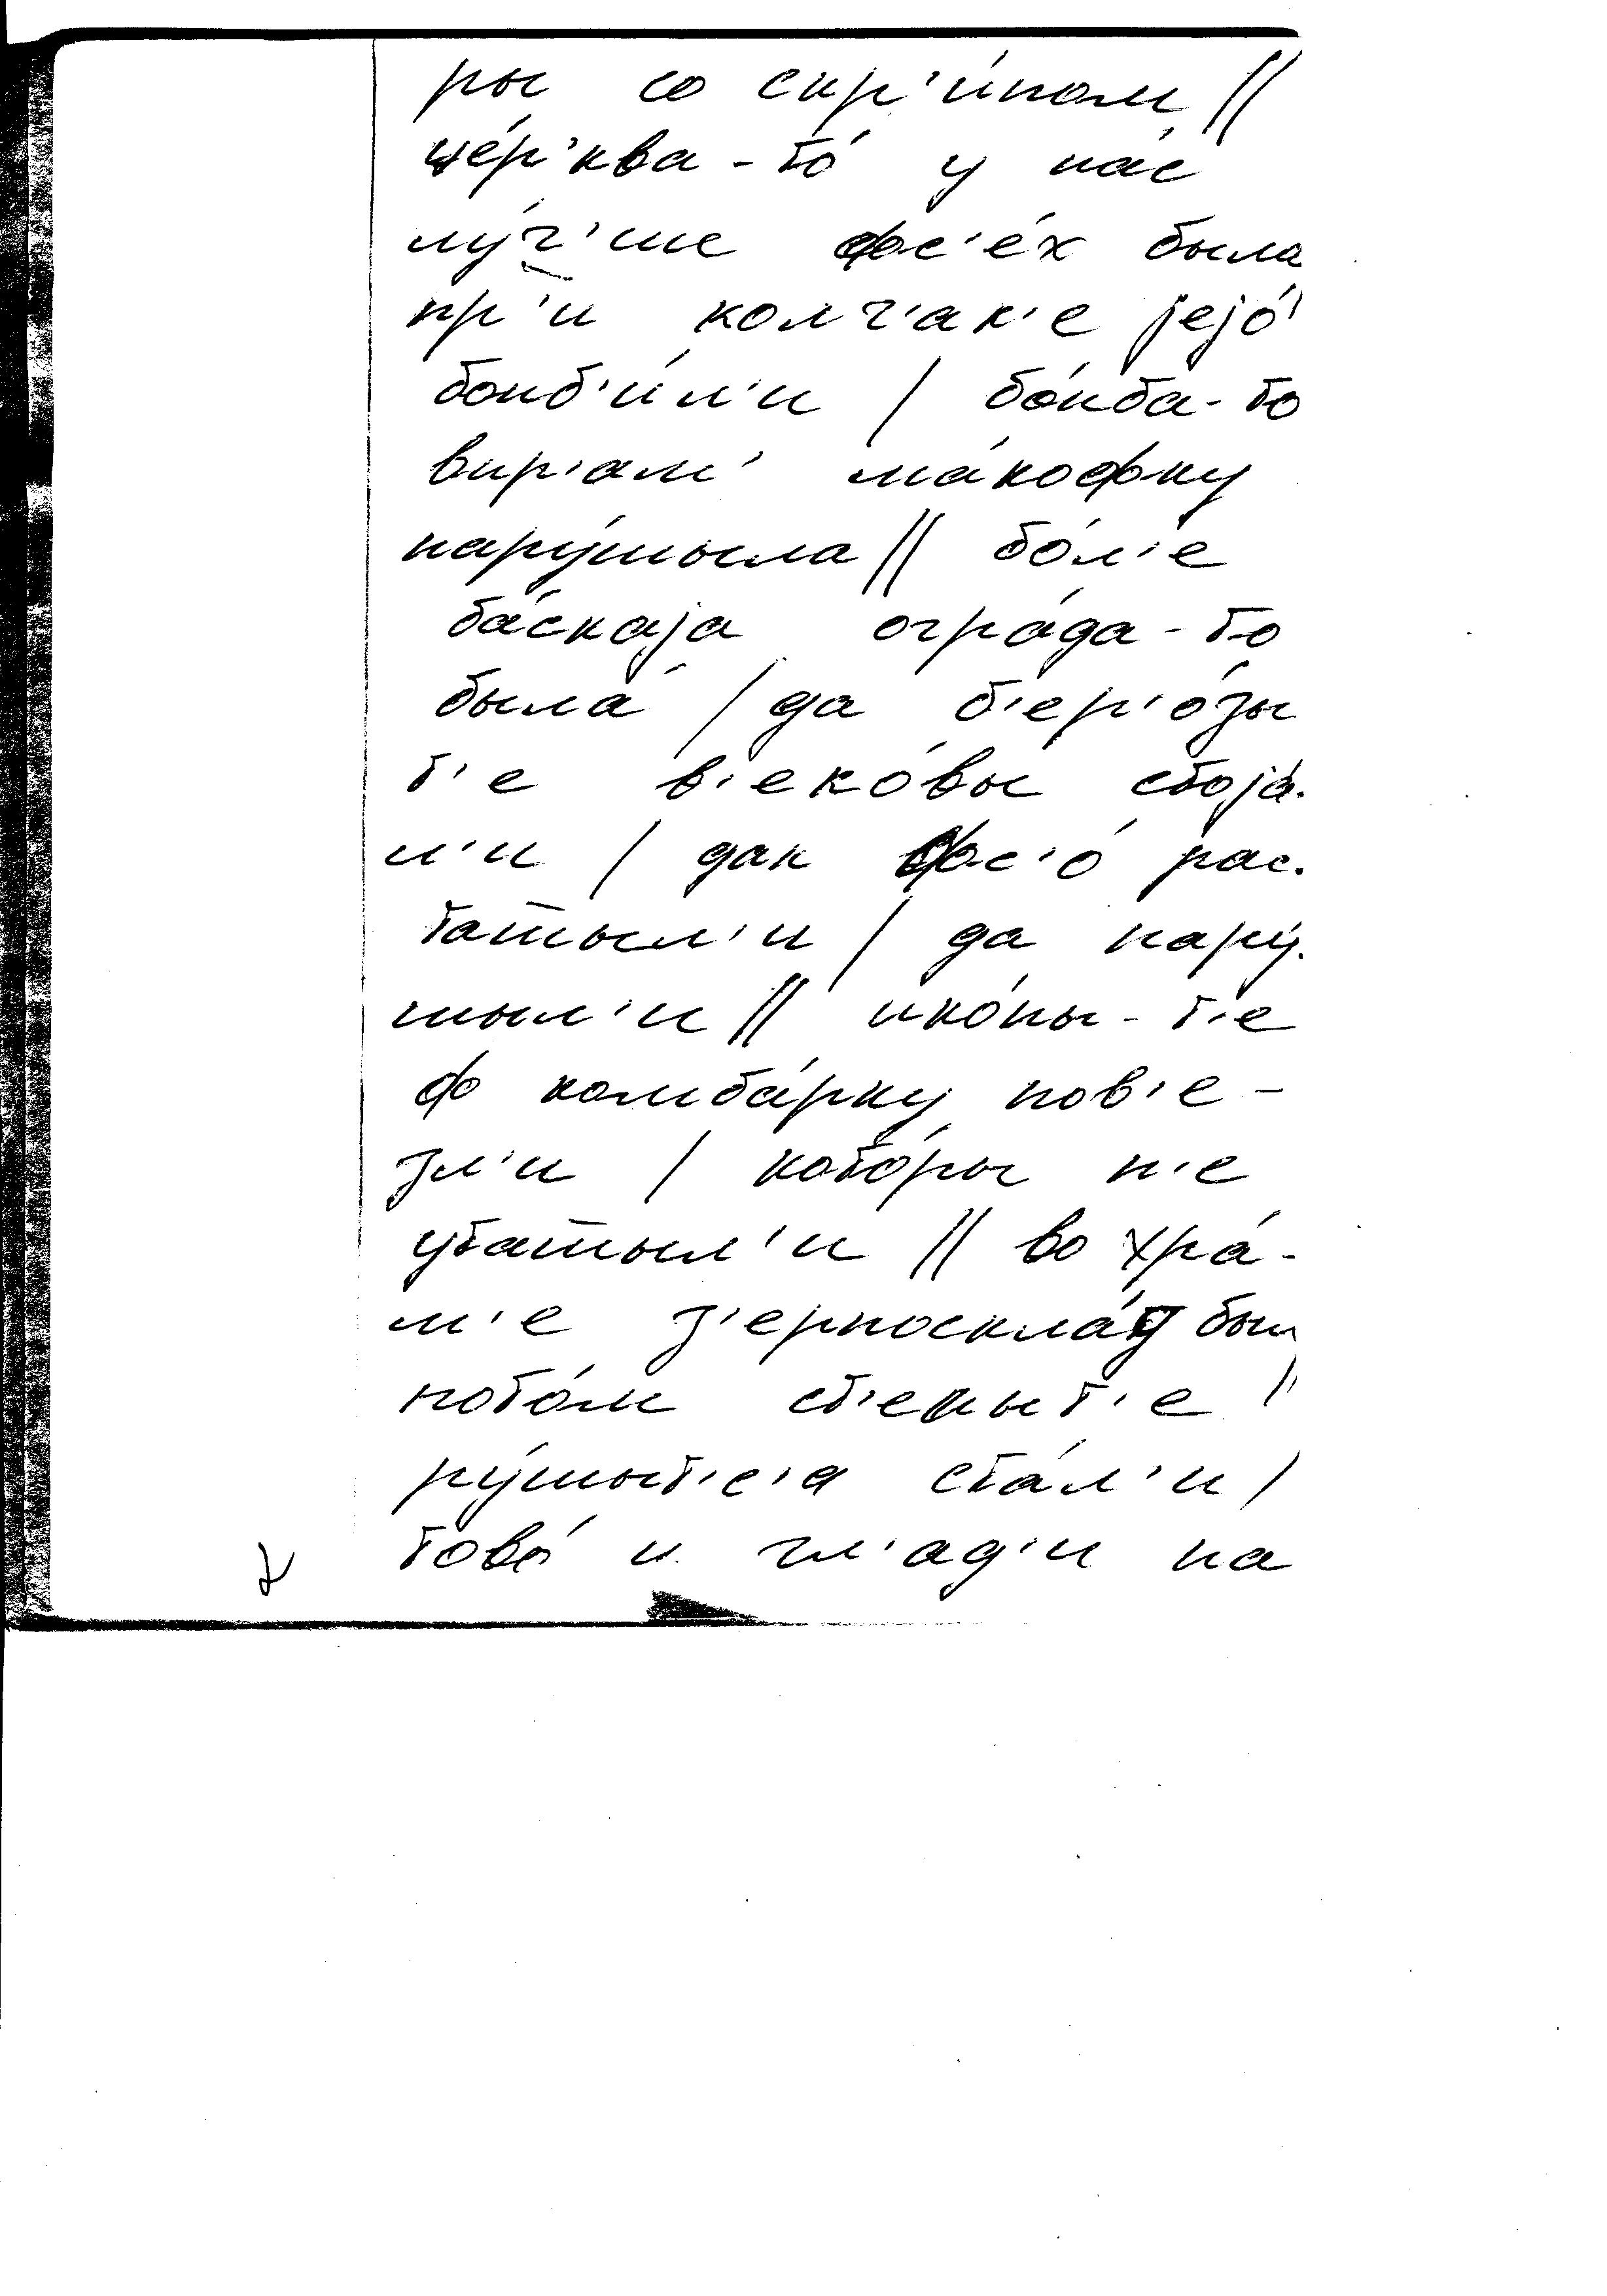 ры со скр'и́пом //
це́р'ква-то́ у на́с
лу́ч'ше фс'е́х была
пр'и колч'ак'е jеjо́
бонб'и́л'и / бо́нба-то
впр'ам' ма́кофку
нару́шыла // бо́л'е
ба́скаjа огра́да-то
была́ / да б'ер'о́зы
т'е в'еко́вы стоjа́-
л'и / дак фс'о́ рас-
ташыл'и / да нару́-
шыл'и // ико́ны-т'е
ф камба́рку пов'е-
зл'и / кото́ры н'е
уташыл'и // во хра́-
м'е з'ерноскла́д был
пото́м ст'еныт'е /
ру́шыт'с'а ста́л'и /
тово́ и гл'ад'и на